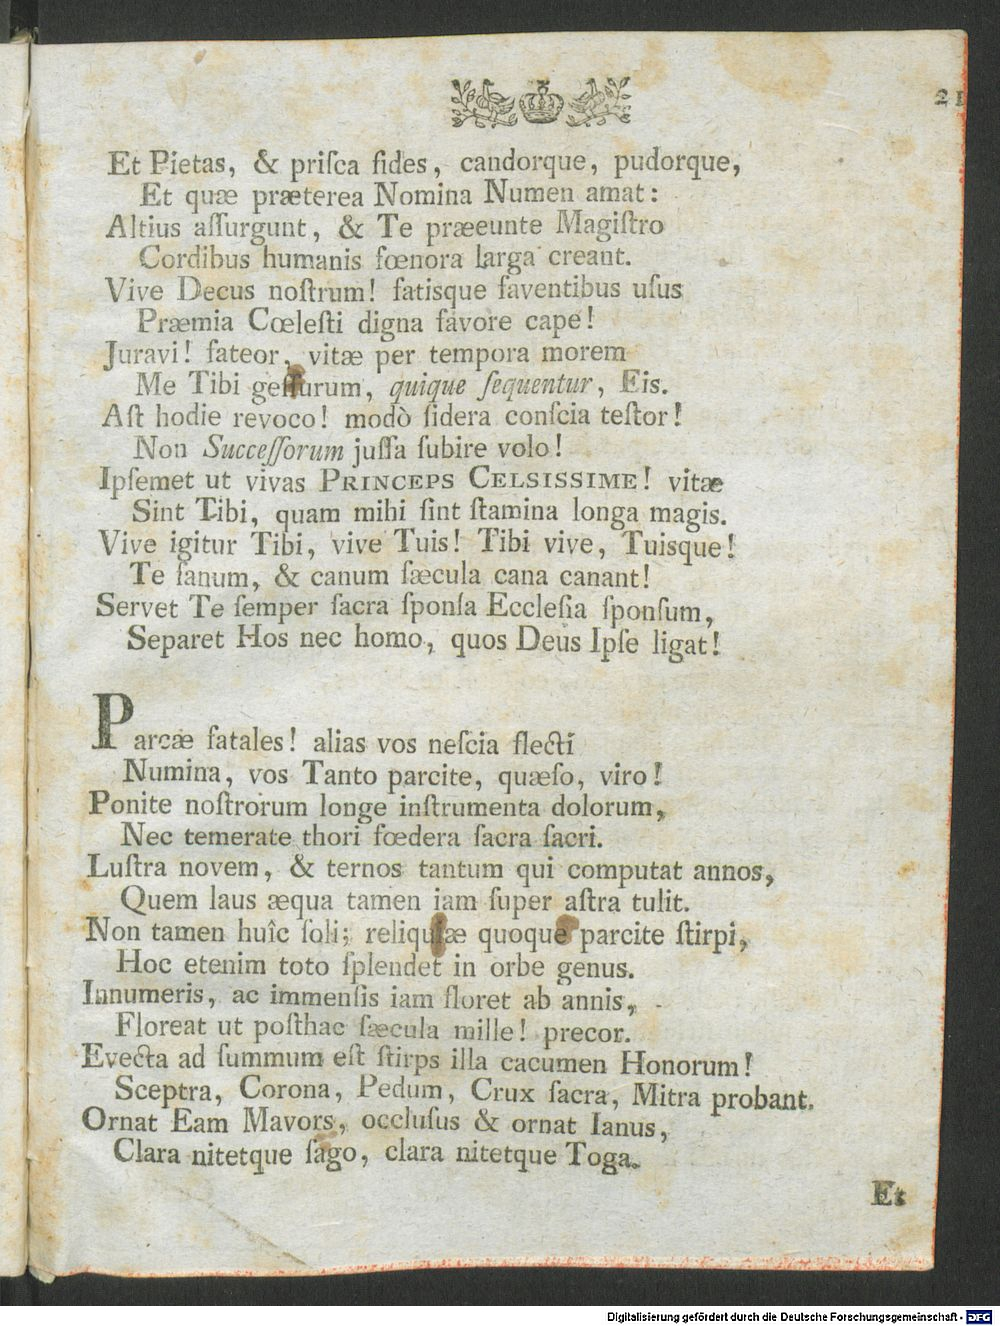 Et Pietas, & priſca fides, candorque, pudorque,
Et quæ præterea Nomina Numen amat:
Altius aſſurgunt, & Te præeunte Magiſtro
Cordibus humanis fœnora larga creant.
Vive Decus noſtrum! fatisque faventibus uſus
Præmia Cœleſti digna favore cape!
Juravi! fateor, vitæ per tempora morem
Me Tibi geſſurum, quique ſequentur, Eis.
Aſt hodie revoco! modò ſidera conſcia teſtor!
Non Succeſſorum juſſa ſubire volo!
Ipſemet ut vivas PRINCEPS CELSISSIME! vitæ
Sint Tibi, quam mihi ſint ſtamina longa magis.
Vive igitur Tibi, vive Tuis! Tibi vive, Tuisque!
Te ſanum, & canum ſæcula cana canant!
Servet Te ſemper ſacra ſponſa Eccleſia ſponſum,
Separet Hos nec homo, quos Deus Ipſe ligat!
Parcæ fatales! alias vos neſcia flecti
Numina, vos Tanto parcite, quæſo, viro!
Ponite noſtrorum longe inſtrumenta dolorum,
Nec temerate thori fœdera ſacra ſacri.
Luſtra novem, & ternos tantum qui computat annos,
Quem laus æqua tamen iam ſuper aſtra tulit.
Non tamen huîc ſoli; reliquiæ quoque parcite ſtirpi,
Hoc etenim toto ſplendet in orbe genus.
Innumeris, ac immenſis iam floret ab annis,
Floreat ut poſthac ſæcula mille! precor.
Evecta ad ſummum eſt ſtirps illa cacumen Honorum!
Sceptra, Corona, Pedum, Crux ſacra, Mitra probant.
Ornat Eam Mavors, occluſus & ornat Ianus,
Clara nitetque ſago, clara nitetque Toga.
Et
Digitalisierung gefördert durch die Deutsche Forschungsgemeinschaft - DFG